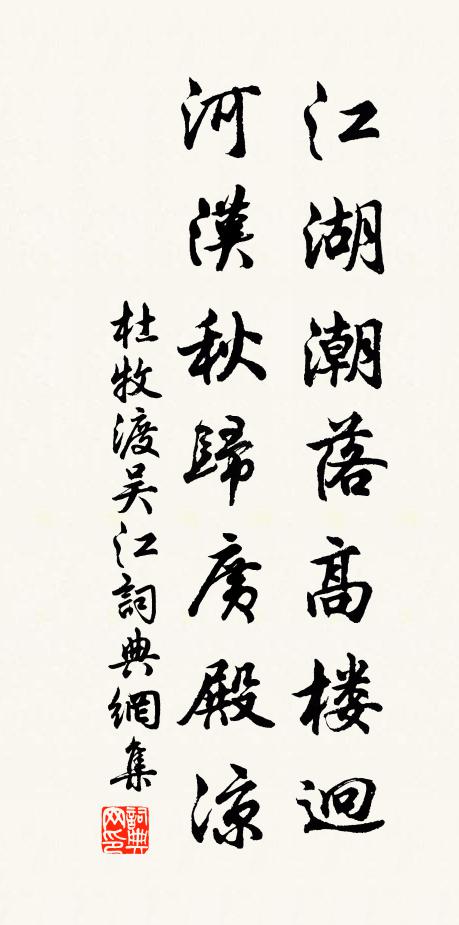 江湖潮落高楼迥
河漢秋歸廣殿涼
杜牧渡吴江詞典網集
詞典网印